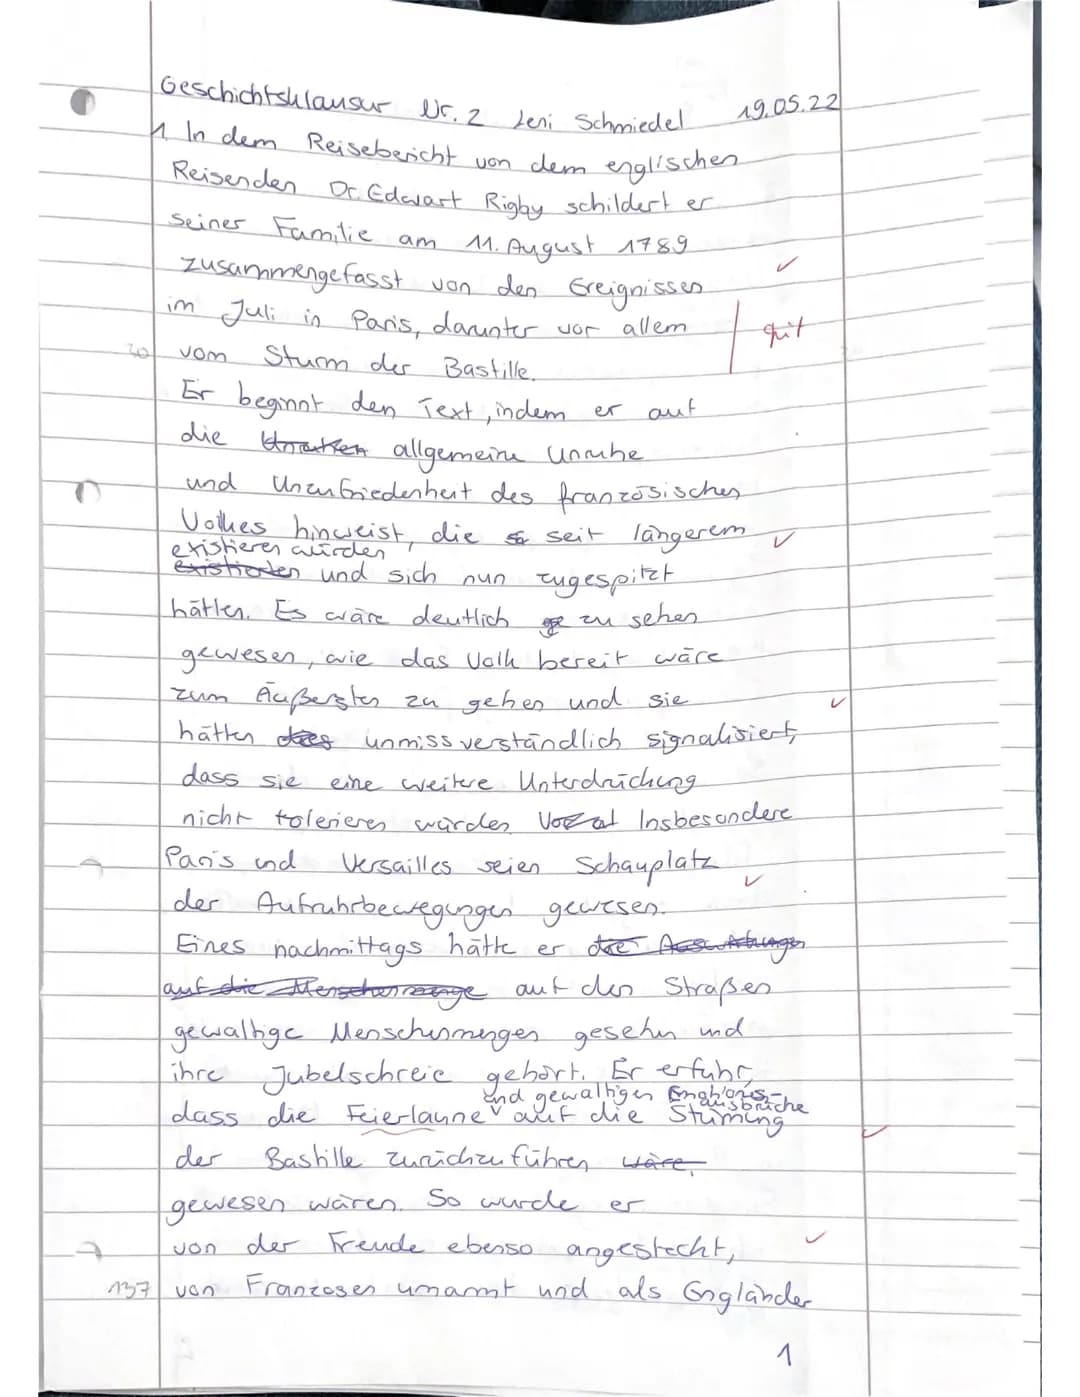 Geschichtsklausur Nr. 2 Leni Schmiedel 19.05.22
1. In dem Reisebericht von dem englischen
Reisenden Dr. Edwart Rigby schildert er
seiner Familie am 11. August 1789
zusammengefasst von den Ereignissen
im Juli in Paris, darunter vor allem
gut
vom Sturm der Bastille.
Er beginnt den Text, indem er auf
die allgemeine Unruhe
und Unzufriedenheit des französischen
Volkes hinweist, die seit längerem
existieren würden
existierten und sich nun zugespitzt
hätten. Es wäre deutlich zu sehen
gewesen, wie das Volk bereit wäre
zum Äußersten zu gehen und sie
hätten dies unmissverständlich signalisiert,
dass sie eine weitere Unterdrückung
nicht tolerieren würden. Insbesondere
Paris und Versailles seien Schauplatz
der Aufruhrbewegungen gewesen.
Eines nachmittags hätte er die Auswirkungen
auf die Menschenmenge auf den Straßen
gewaltige Menschenmengen gesehen und
ihre Jubelschreie gehört. Er erfuhr,
und gewaltigen Emotions-
ausbrüche
dass die Feierlaune auf die Stürmung
der Bastille zurückzuführen wäre,
gewesen wären. So wurde er
von der Freude ebenso angesteckt,
137 von Franzosen umarmt und als Engländer
1